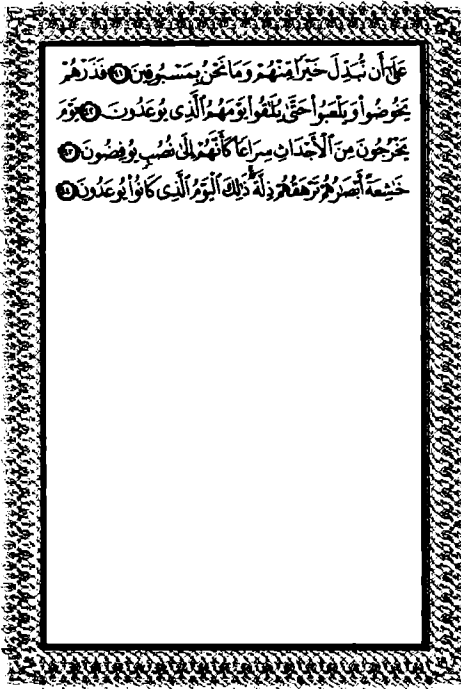 عَلَىٰٓ أَن نُّبَدِّلَ خَيْرًا مِّنْهُمْ وَمَا نَحْنُ بِمَسْبُوقِينَ ٤١ فَذَرْهُمْ
يَخُوضُوا۟ وَيَلْعَبُوا۟ حَتَّىٰ يُلَٰقُوا۟ يَوْمَهُمُ ٱلَّذِى يُوعَدُونَ ٤٢ يَوْمَ
يَخْرُجُونَ مِنَ ٱلْأَجْدَاثِ سِرَاعًا كَأَنَّهُمْ إِلَىٰ نُصُبٍ يُوفِضُونَ ٤٣
خَٰشِعَةً أَبْصَٰرُهُمْ تَرْهَقُهُمْ ذِلَّةٌ ذَٰلِكَ ٱلْيَوْمُ ٱلَّذِى كَانُوا۟ يُوعَدُونَ ٤٤